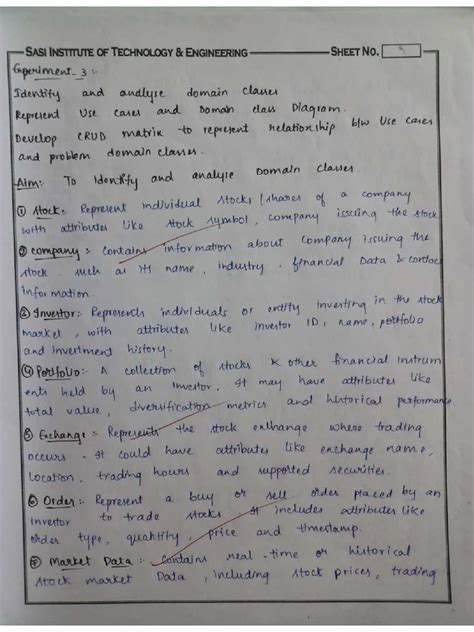 SASI INSTITUTE OF TECHNOLOGY & ENGINEERING SHEET NO.
Experiment_3 :-
Identify and analyse domain classes
Represent Use cases and Domain class Diagram.
Develop CRUD matrix to represent relationship b/w Use cases
and problem domain classes.
Aim:- To Identify and analyse Domain classes.
① Stock:- Represent individual stocks / shares of a company
with attributes like stock symbol, company issuing the stock
② company :- Contains information about company issuing the
stock. such as its name, industry, financial Data & contact
information.
③ Investor:- Represents individuals or entity investing in the stock
market, with attributes like investor ID, name, portfolio
and investment history.
④ Portfolio:- A collection of stocks & other financial instrum
ents held by an investor. It may have attributes like
total value, diversification metrics and historical performance
⑤ Exchange :- Represents the stock exchange where trading
occurs. It could have attributes like exchange name,
location, trading hours and supported securities.
⑥ Order:- Represent a buy or sell order placed by an
investor to trade stocks. It includes attributes like
order type, quantity, price and timestamp.
⑦ Market Data:- Contains real-time or historical
stock market Data, including stock prices, trading